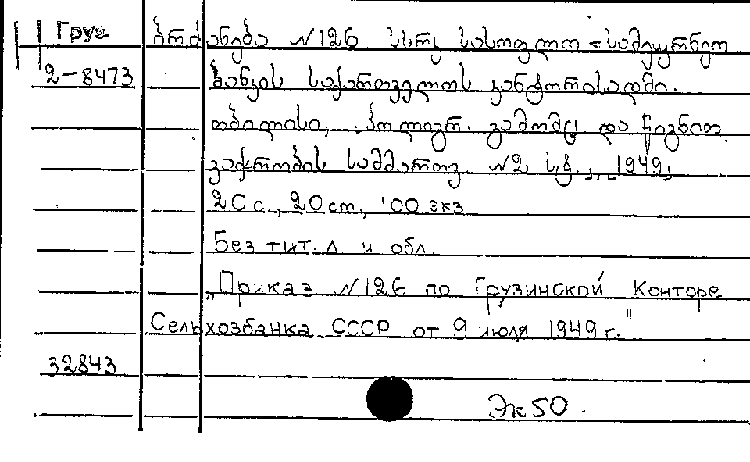 Груз
ბრძანება №126 სსრკ სასოფლო-სამეურნეო
2-8473 ბანკის საქართველოს კანტორისადმი.
თბილისი, პოლიგრ. გამომც და წიგნით
ვაჭრობის სამმართვ. №2 სტ., 1949,
20с., 20cm, 100 экз
Без тит. л и обл
„Приказ №126 по Грузинской Конторе
Сельхозбанка СССР от 9 июля 1949 г."
32843
Эк 50.